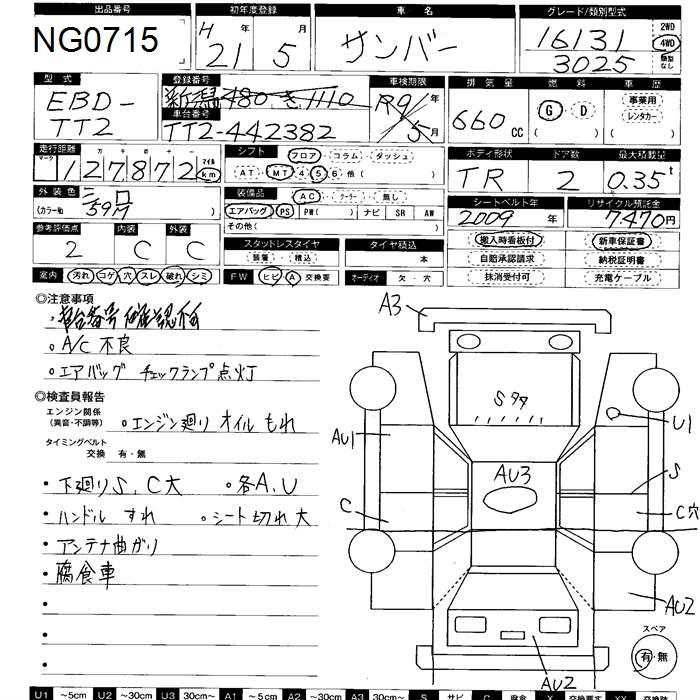 出品番号 初年度登録 車名 グレード/類別型式
NG0715 H 21 年 5 月 サンバー 16131 3025 2WD 4WD 類型なし
型式 登録番号 車検期限 排気量 燃料 車歴
EBD-TT2 新潟480き1110 R9年 5月 660 CC G・D ( ) 事業用 レンタカー ( )
車台番号
TT2-442382
走行距離 シフト ボディ形状 ドア数 最大積載量
マーク 十 万 千 百 十 一
127,872 マイル km フロア・コラム・ダッシュ TR 2 0.35t
AT・MT 4 5 6 他( )
外装色 装備品 シートベルト年 リサイクル預託金
(カラー№ 59M ) AC・クーラー・無し 2009年 7,470円
エアバッグ PS PW( ) ナビ SR AW
その他( )
参考評価点 内装 外装 スタッドレスタイヤ タイヤ積込 搬入時看板付 新車保証書
2 C C 装着・積込 本 自賠承認請求 納税証明書
室内 汚れ コゲ 穴 スレ 破れ シミ FW ヒビ A 交換要 オーディオ 欠・穴 抹消受付可 充電ケーブル
◎注意事項
・車台番号確認不可
○A/C 不良
○エアバッグ チェックランプ点灯
◎検査員報告
エンジン関係
(異音・不調等) ○エンジン廻り オイルもれ
タイミングベルト
交換 有・無
・下廻りS、C大 ○各A、U
・ハンドルすれ ○シート切れ大
・アンテナ曲がり
・腐食車
A3
Sタタ
U1
AU1
AU3
S
C
C穴
AU2
AU2
スペア
有・無
U1 ～5cm U2 ～30cm U3 30cm～ A1 ～5cm A2 ～30cm A3 30cm～ S サビ C 腐食 X 交換要す XX 交換跡